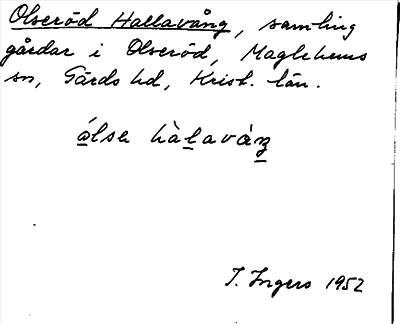 Olseröd Hallavång, samling
gårdar i Olseröd, Maglehems
sn, Gärds hd, Krist. län.
I. Ingers 1952